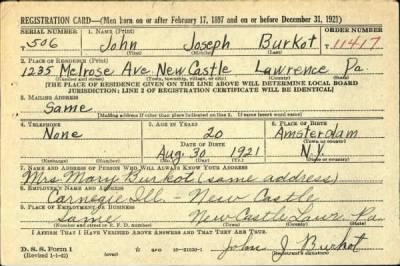 REGISTRATION CARD—(Men born on or after February 17, 1897 and on or before December 31, 1921)
SERIAL NUMBER 1. NAME (Print) ORDER NUMBER
506 John Joseph Burkot 11417
(First) (Middle) (Last)
2. PLACE OF RESIDENCE (Print)
1235 Melrose Ave New Castle Lawrence Pa.
(Number and street) (Town, township, village, or city) (County) (State)
[THE PLACE OF RESIDENCE GIVEN ON THE LINE ABOVE WILL DETERMINE LOCAL BOARD
JURISDICTION; LINE 2 OF REGISTRATION CERTIFICATE WILL BE IDENTICAL]
3. MAILING ADDRESS
Same
[Mailing address if other than place indicated on line 2. If same insert word same]
4. TELEPHONE 5. AGE IN YEARS 6. PLACE OF BIRTH
None 20 Amsterdam
DATE OF BIRTH (Town or county)
Aug. 30 1921 N.Y.
(Exchange) (Number) (Mo.) (Day) (Yr.) (State or country)
7. NAME AND ADDRESS OF PERSON WHO WILL ALWAYS KNOW YOUR ADDRESS
Mrs Mary Burkot (same address)
8. EMPLOYER'S NAME AND ADDRESS
Carnegie Ill. - New Castle
9. PLACE OF EMPLOYMENT OR BUSINESS
Same New Castle Lawr. Pa.
(Number and street or R. F. D. number) (Town) (County) (State)
I AFFIRM THAT I HAVE VERIFIED ABOVE ANSWERS AND THAT THEY ARE TRUE.
D. S. S. Form 1
(Revised 1-1-42)
John J Burkot